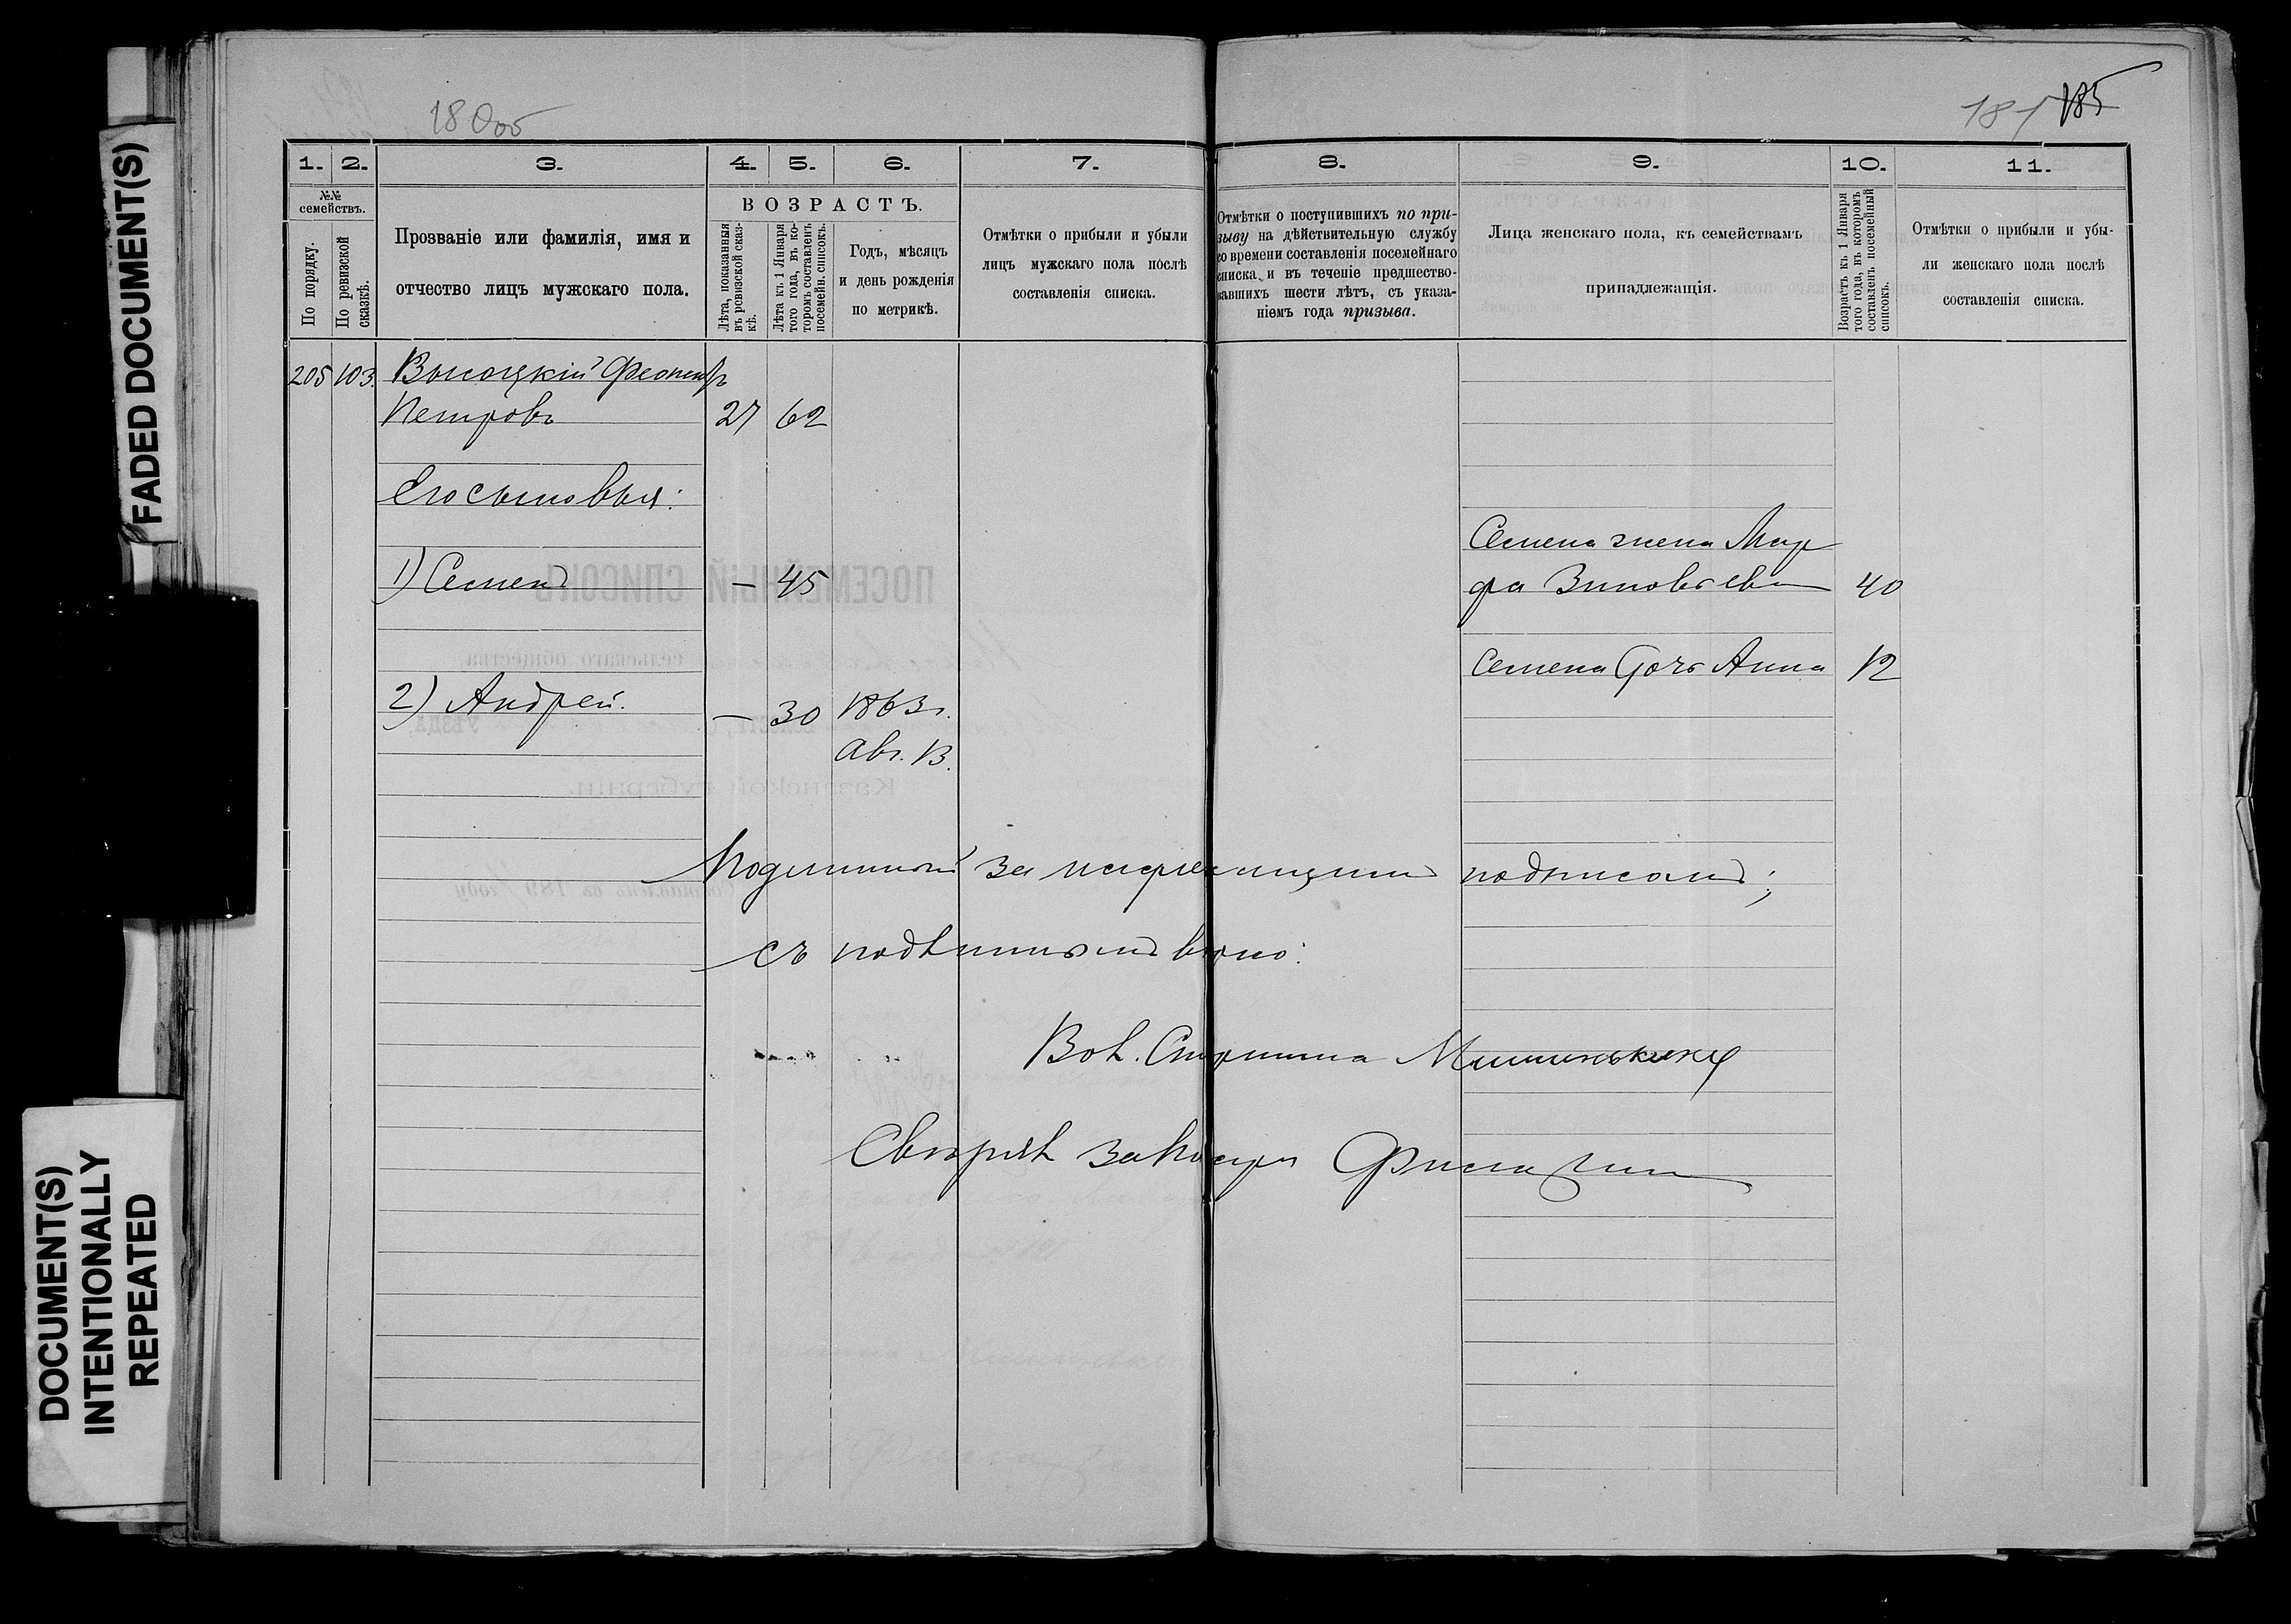 FADED DOCUMENT(S)
DOCUMENT(S)
INTENTIONALLY
REPEATED
180об
181 185
1. 2. 3. 4. 5. 6. 7. 8. 9. 10. 11.
№№ семействъ.
По порядку.
По ревизской сказкѣ.
Прозваніе или фамилія, имя и
отчество лицъ мужскаго пола.
ВОЗРАСТЪ.
Лѣта, показанныя
въ ревизской сказ-
кѣ.
Лѣта къ 1 Января
того года, въ ко-
торомъ составленъ
посемейн. списокъ.
Годъ, мѣсяцъ
и день рожденія
по метрикѣ.
Отмѣтки о прибыли и убыли
лицъ мужскаго пола послѣ
составленія списка.
Отмѣтки о поступившихъ по при-
зыву на дѣйствительную службу
со времени составленія посемейнаго
списка и въ теченіе предшество-
вавшихъ шести лѣтъ, съ указа-
ніемъ года призыва.
Лица женскаго пола, къ семействамъ
принадлежащія.
Возрастъ къ 1 Января
того года, въ которомъ
составленъ посемейный
списокъ.
Отмѣтки о прибыли и убы-
ли женскаго пола послѣ
составленія списка.
205 103. Высоцкій
Петровъ 27 62
Его сыновья:
Семена жена Мар
1) Семенъ — 45 фа Зиновьева 40
Семена дочь Анна 12
2) Андрей. — 30 1863г.
Авг. 13.
Подлинный за надлежащимъ подписомъ;
съ подлиннымъ вѣрно:
Вол. Старшина Мишинькинъ
Свѣрялъ за Писаря
ПОСЕМЕЙНЫЙ СПИСОКЪ
сельскаго общества,
УѢЗДА,
Казанской губерніи.